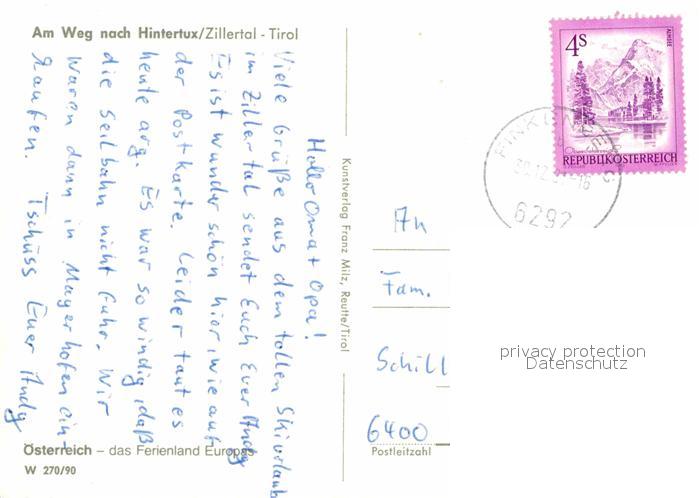 Am Weg nach Hintertux/Zillertal - Tirol
Hallo Oma + Opa!
Viele Grüße aus dem tollen Skiurlaub
im Zillertal sendet Euch Euer Andy
Es ist wunderschön hier, wie auf
der Postkarte. Leider taut es
heute arg. Es war so windig, daß
die Seilbahn nicht fuhr. Wir
waren dann in Mayerhofen ein-
kaufen. Tschüss Euer Andy
Österreich – das Ferienland Europas
W 270/90
Kunstverlag Franz Milz, Reutte/Tirol
4 S
ALMSEE
REPUBLIK ÖSTERREICH
6292
An
Fam.
Schill
6400
Postleitzahl
privacy protection
Datenschutz